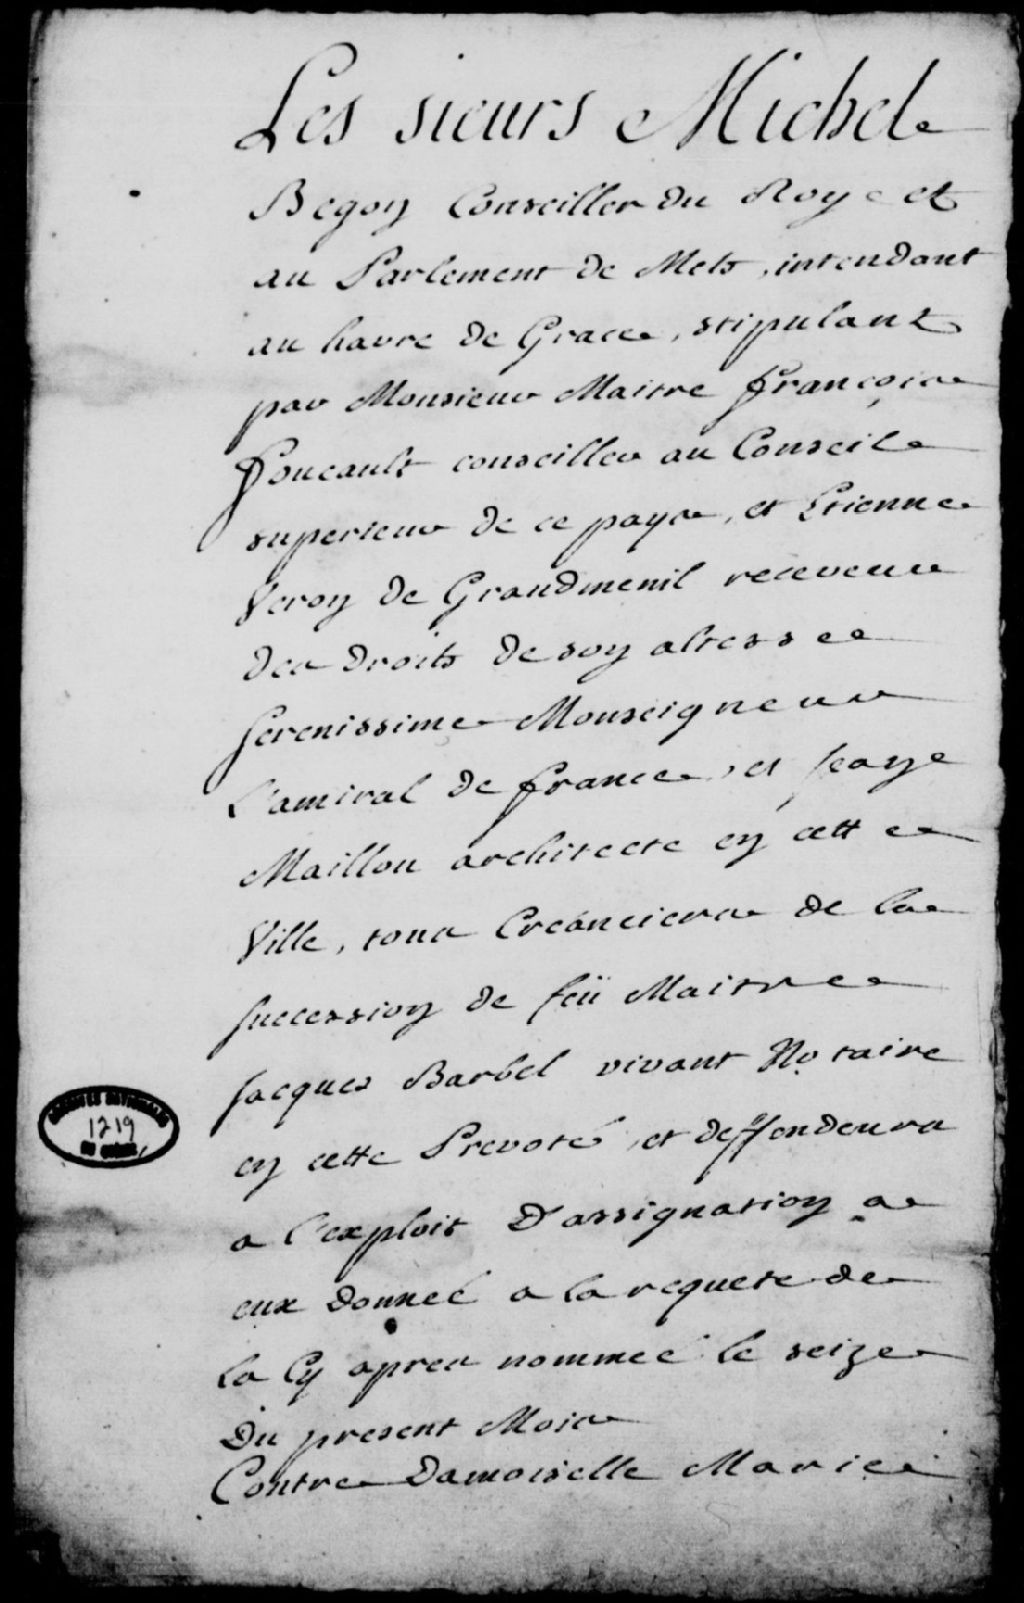 Les sieurs Michel
Begon Conseiller du Roy et
au Parlement de Mets, intendant
au havre de Grace, stipulant
par Monsieur Maitre françois
foucault conseiller au Conseil
superieur de ce pays, et Etienne
Veron de Grandmenil receveur
des droits de son altesse
serenissime Monseigneur
L'amiral de france, et jean
Maillou architecte en cette
Ville, tous Creanciers de la
succession de feü Maitre
jacques Barbel vivant Notaire
en cette Prevoté, et deffendeurs
a l'exploit D'assignation a
eux donneé a la requete de
la Cy apres nommeé le seize
Du present Mois
Contre Damoiselle Marie
ARCHIVES NATIONALES
1219
DU QUÉBEC